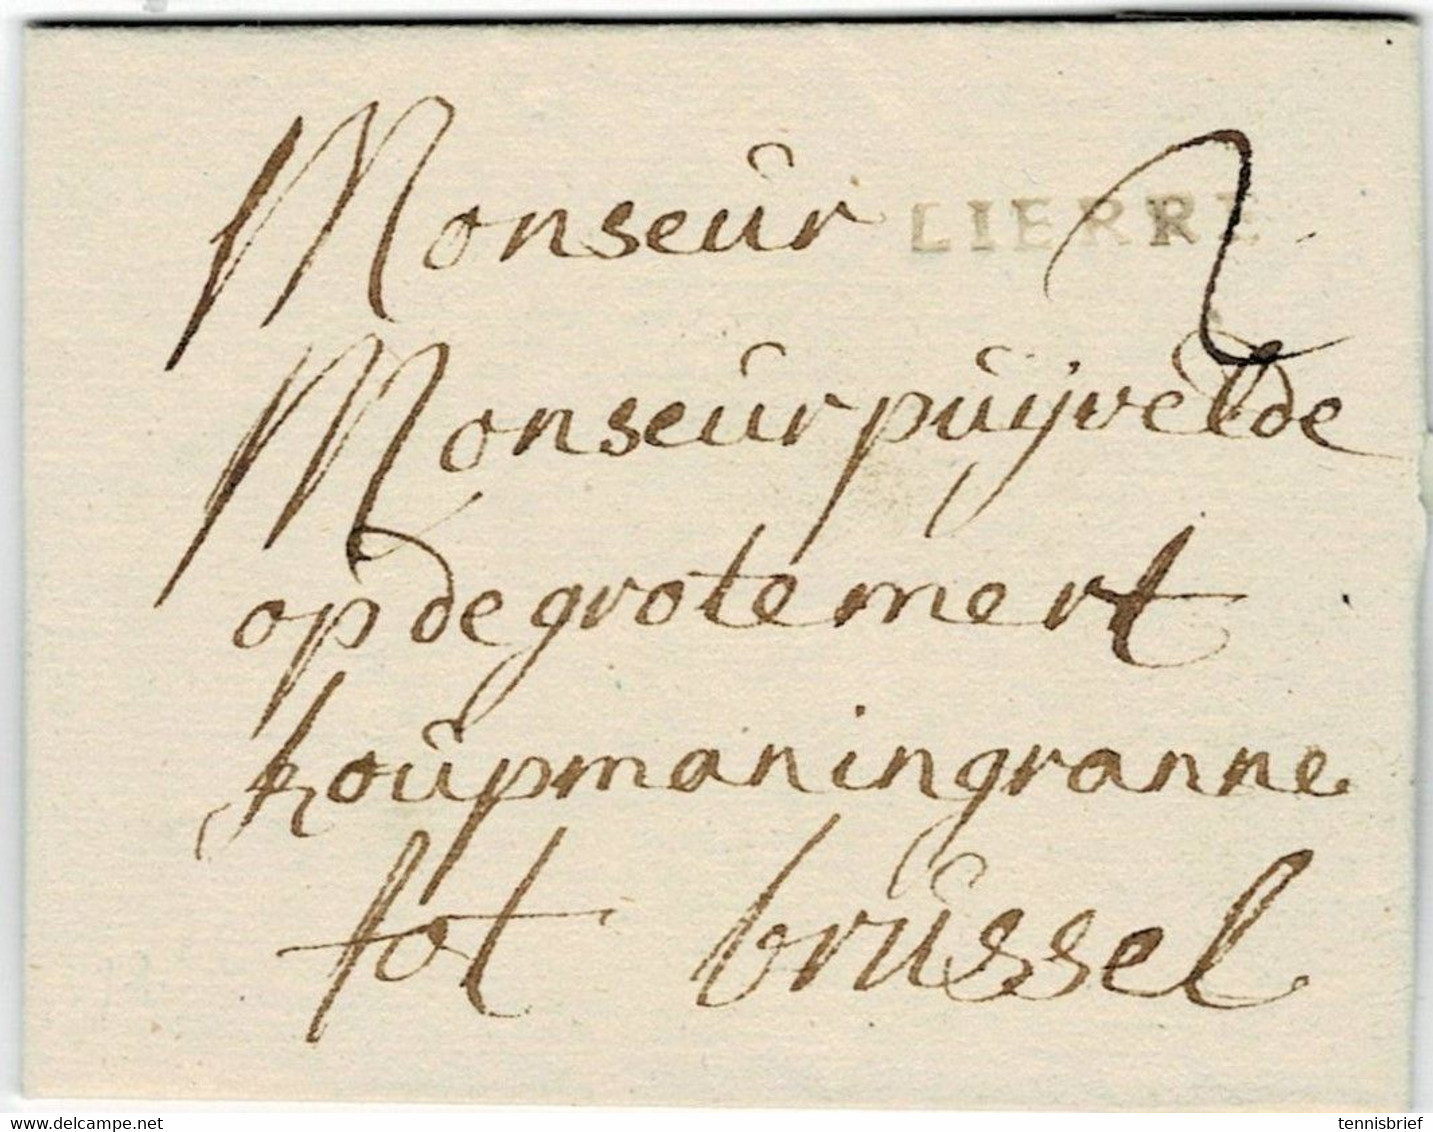 Monseur LIERRE 2
Monseur puijvelde
op de grote mert
koupman in granne
tot brussel
tennisbrief